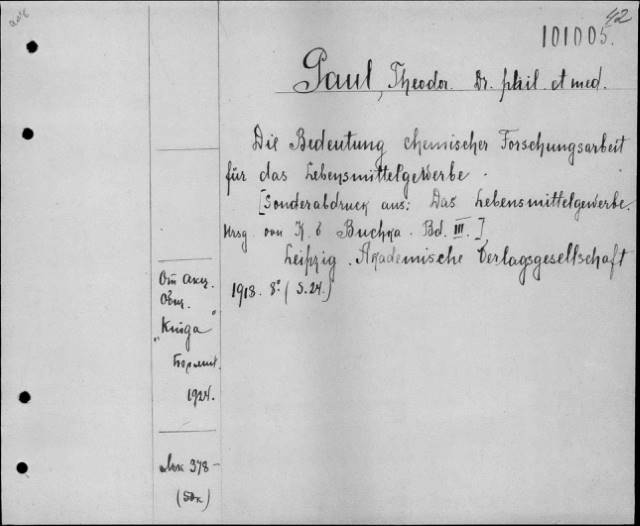 42
101005.
Paul, Theodor. Dr. phil. et med.
Die Bedeutung chemischer Forschungsarbeit
für das Lebensmittelgewerbe.
[Sonderabdruck aus: Das Lebensmittelgewerbe.
Hrsg. von K. v Buchka. Bd. III.]
Leipzig. Akademische Verlagsgesellschaft
1918. 8° (S. 24.)
От Акц.
Общ.
"Книга"
Берлин.
1924.
378 -